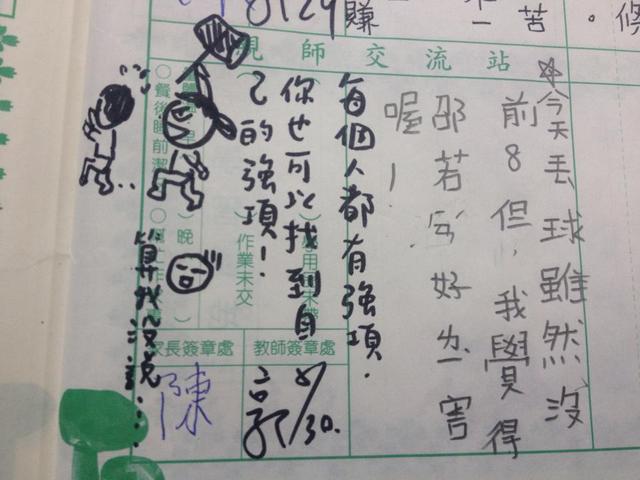 8/29
賺
一
苦
。
修
親師交流站
☆今天丟球雖然沒
前8但,我覺得
邵若 好 害
喔!
每個人都有強項.
你也可以找到自
己的強項!
作業未交
○晚
○餐後睡前潔
算我沒說
教師簽章處
家長簽章處
郭 8/30.
陳